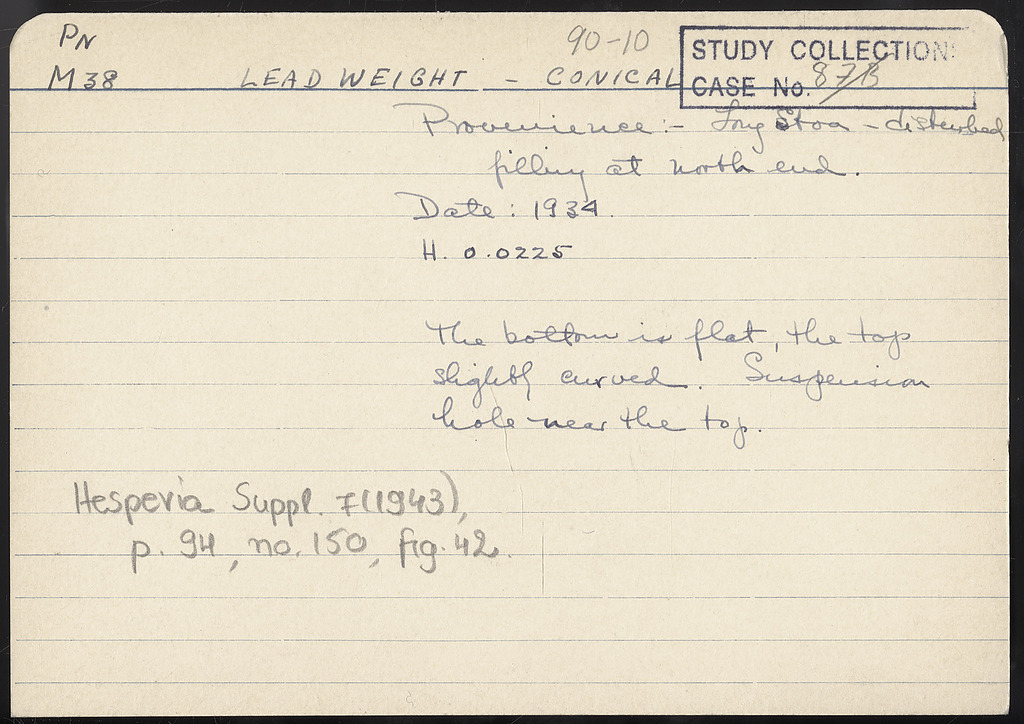 PN
90-10
STUDY COLLECTION
M 38 LEAD WEIGHT - CONICAL
CASE No. 87B
Provenience :- Long Stoa - disturbed
filling at north end.
Date : 1934.
H. 0.0225
The bottom is flat, the top
slightly curved. Suspension
hole near the top.
Hesperia Suppl. 7 (1943),
p. 94, no. 150, fig. 42.